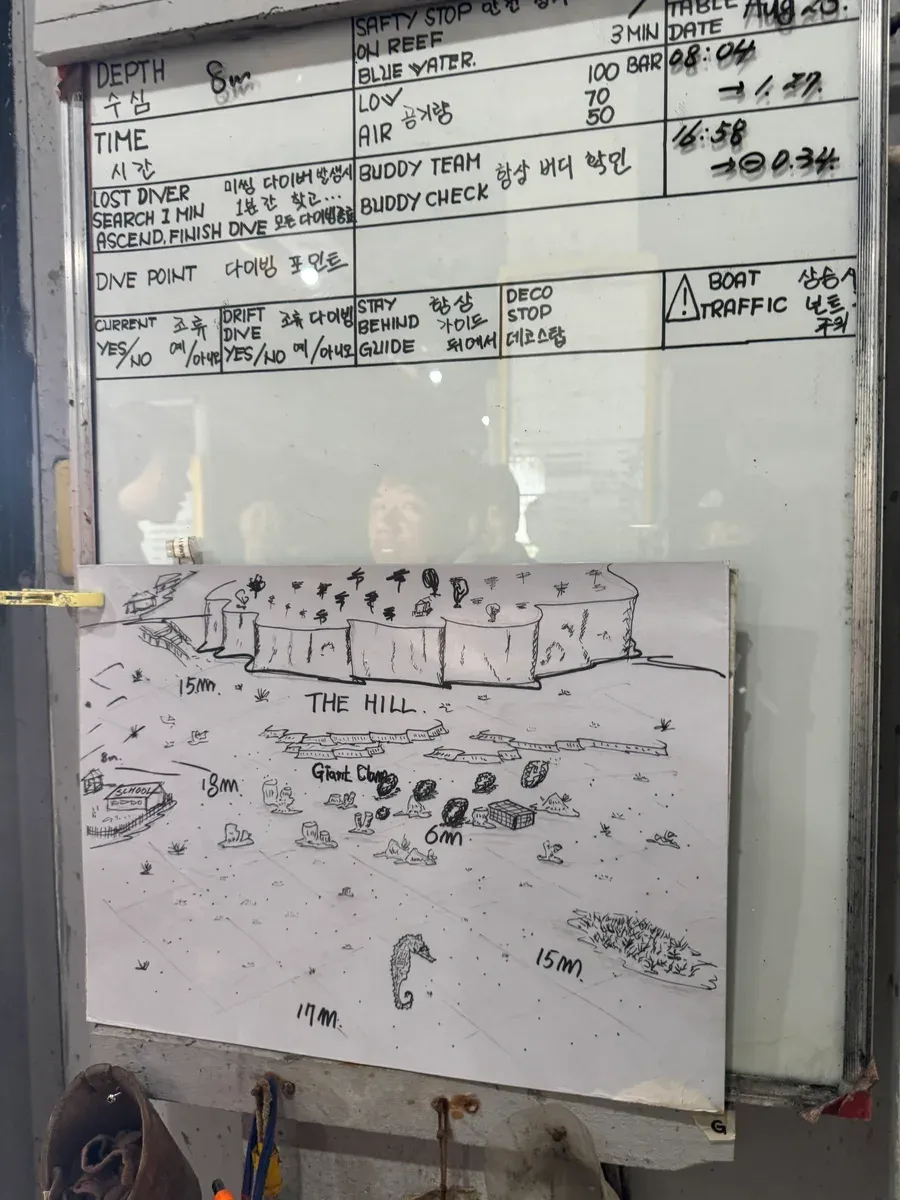 SAFTY STOP 안전
ON REEF 3 MIN
BLUE WATER.
TABLE Aug
DATE
08:04
→ 1.27.
DEPTH 8m
수심
LOW 100 BAR
공기량 70
AIR 50
TIME
시간
16:58
→⊖0.34.
LOST DIVER 미씽 다이버 발생시
SEARCH 1 MIN 1분간 찾고...
ASCEND, FINISH DIVE 모든 다이빙종료
BUDDY TEAM 항상 버디 확인
BUDDY CHECK
DIVE POINT 다이빙 포인트
CURRENT 조류
YES/NO 예/아니오
DRIFT 조류 다이빙
DIVE
YES/NO 예/아니오
STAY 항상
BEHIND 가이드
GUIDE 뒤에서
DECO
STOP
데코스탑
BOAT 상승시
TRAFFIC 보트
주의
15m.
THE HILL.
8m.
SCHOOL
18m
Giant Clams
6m
15m.
17m.
G